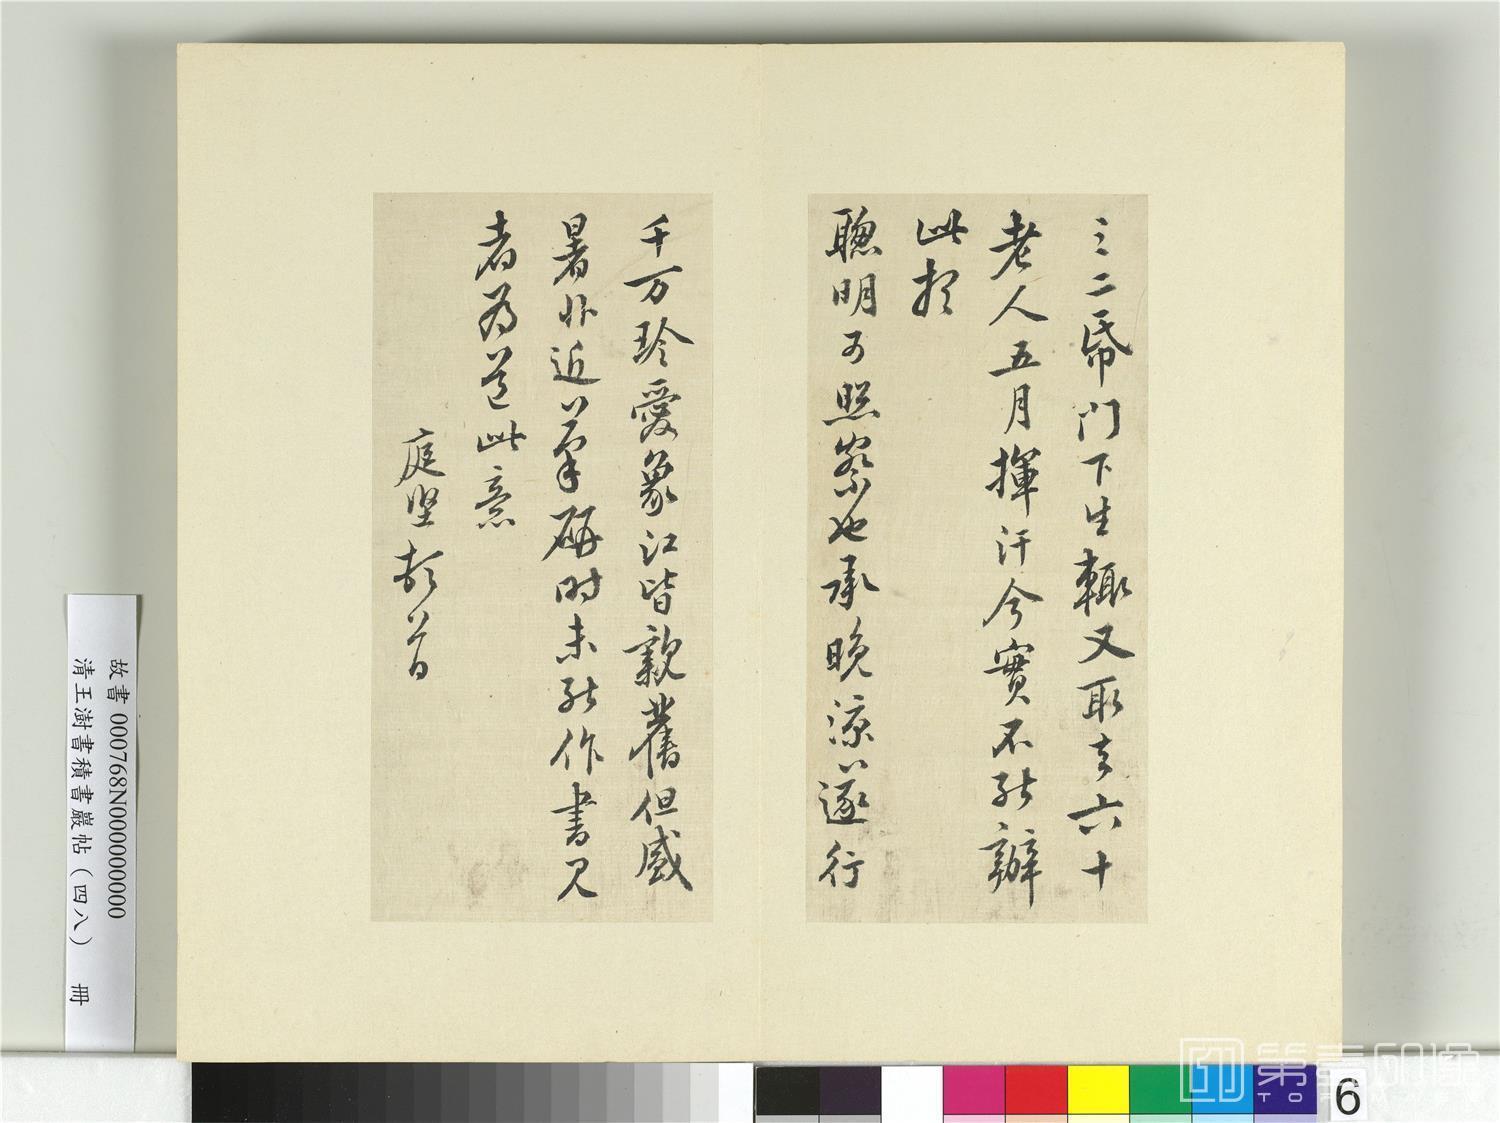 之二帋門下生輙又取去六十
老人五月揮汗今實不能辦
此想
聰明可照察也承晚涼遂行
千万珍愛象江皆親舊但盛
暑非近筆硏時未能作書見
者為道此意
庭堅頓首
故書 000768N000000000
清王澍書積書巖帖(四八) 冊
6